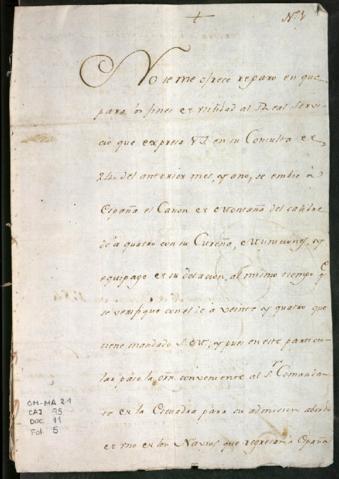 No se me ofrece reparo en que
para los fines de utilidad al Real Servi-
cio que expresa VS en su Consulta de
24 del anterior mes, y año, se embie à
España el Cañon de Montaña del calibre
de à quatro con su Cureña, Municiones, y
equipage de su dotacion, al mismo tiempo q.e
se verifique con el de à veinte y quatro que
tiene mandado S.M., y pues en este particu-
lar paso la orn. conveniente al S.r Comandan-
te de la Esquadra para su admision abordo
de uno de los Navios que regresan à España
GM-MA 21
CAJ 95
DOC 11
Fol 5